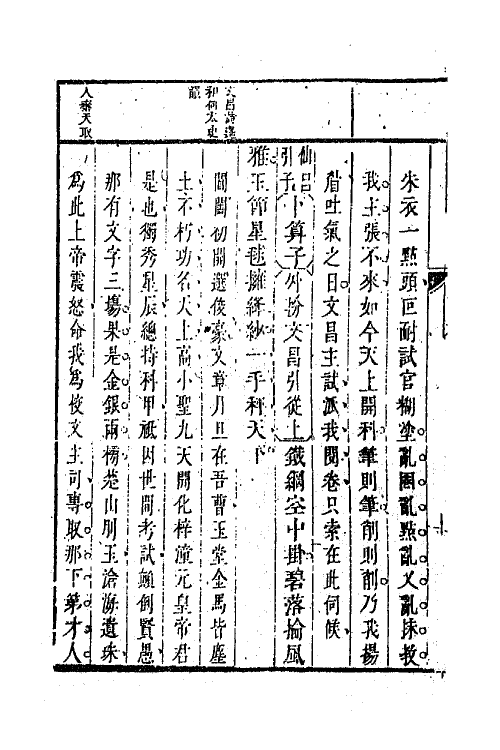 朱衣一點頭叵耐試官糊塗亂圈亂點亂乂亂抹教
我主張不來如今天上開科筆則筆削則削乃我揚
眉吐氣之日文昌主試派我閱卷只索在此伺候
仙呂引子卜算子外扮文昌引從上鐵網空中掛碧落掄風
雅玉節星毬擁絳紗一手秤天下
閶闔初開選俊豪文章月旦在吾曹玉堂金馬皆塵
土不朽功名天上高小聖九天開化梓潼元皇帝君
是也獨秀星辰總持科甲祗因世間考試顛倒賢愚
那有文字三塲果是金銀兩榜楚山刖玉滄海遺珠
為此上帝震怒命我為校文主司專取那下第才人
文昌詩
和何太史
人棄天取